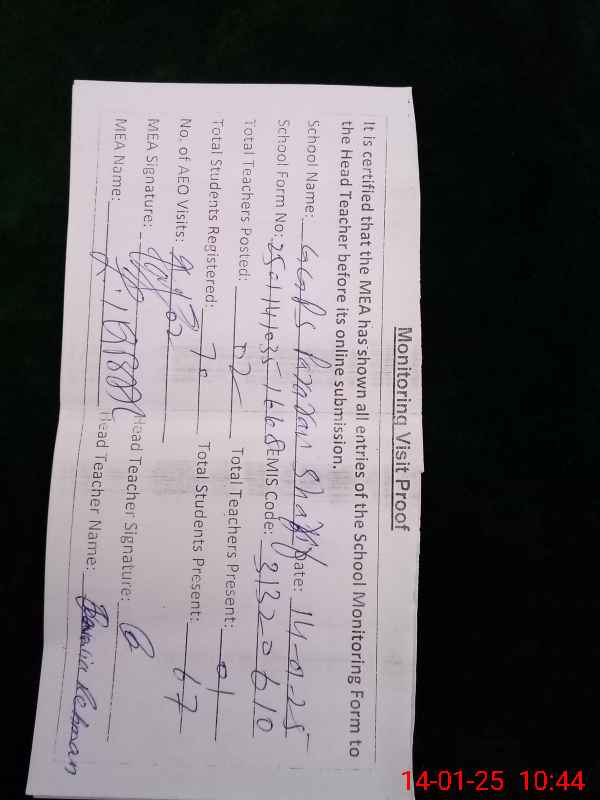 Monitoring Visit Proof
It is certified that the MEA has shown all entries of the School Monitoring Form to
the Head Teacher before its online submission.
School Name: GGPS Date: 14-01-25
School Form No: EMIS Code: 31320610
Total Teachers Posted: 02 Total Teachers Present: 01
Total Students Registered: 70 Total Students Present: 67
No. of AEO Visits: 02
MEA Signature: Head Teacher Signature:
MEA Name: Head Teacher Name: Rehman
14-01-25 10:44